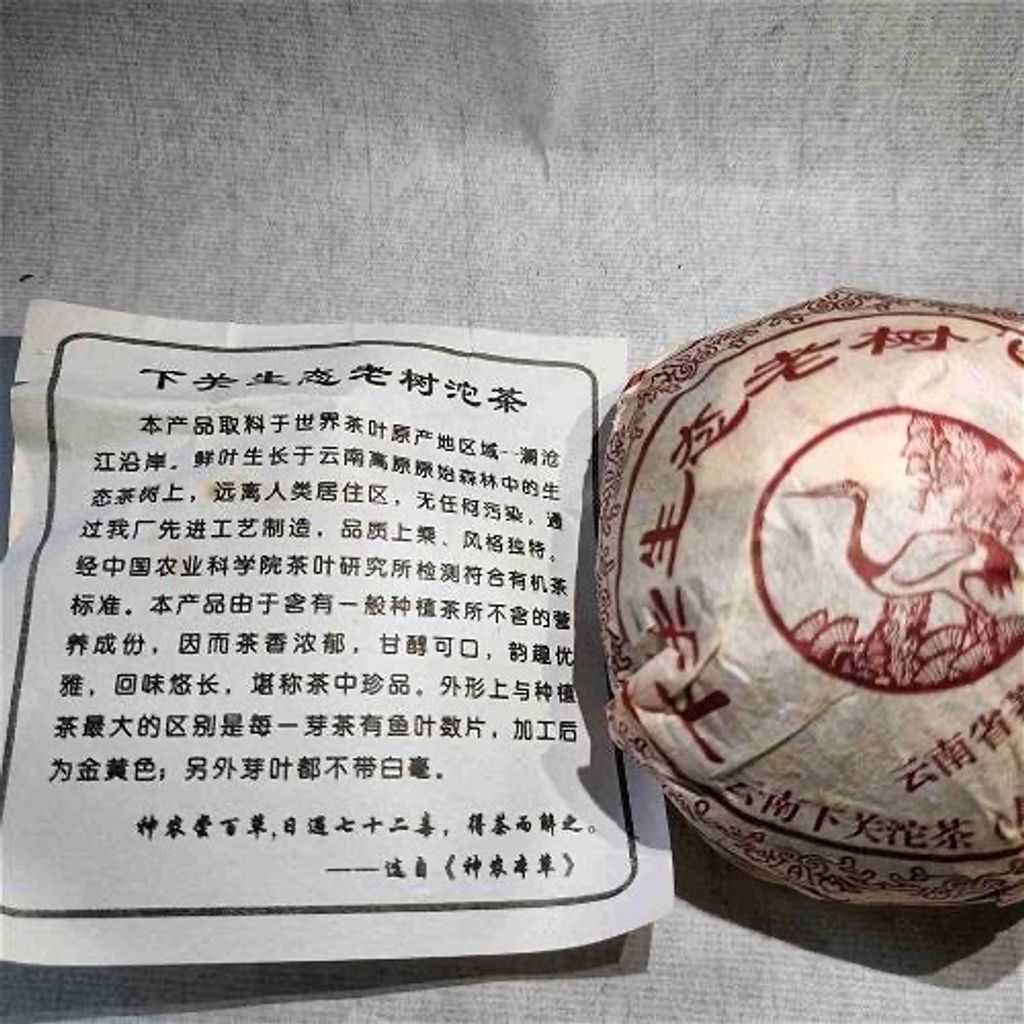 下关生态老树沱茶
本产品取料于世界茶叶原产地区域--澜沧
江沿岸。鲜叶生长于云南高原原始森林中的生
态茶树上，远离人类居住区，无任何污染，通
过我厂先进工艺制造，品质上乘、风格独特。
经中国农业科学院茶叶研究所检测符合有机茶
标准。本产品由于含有一般种植茶所不含的营
养成份，因而茶香浓郁，甘醇可口，韵趣优
雅，回味悠长，堪称茶中珍品。外形上与种植
茶最大的区别是每一芽茶有鱼叶数片，加工后
为金黄色；另外芽叶都不带白毫。
神农尝百草,日遇七十二毒，得茶而解之。
——选自《神农本草》
下关生态老树
云南省
云南下关沱茶